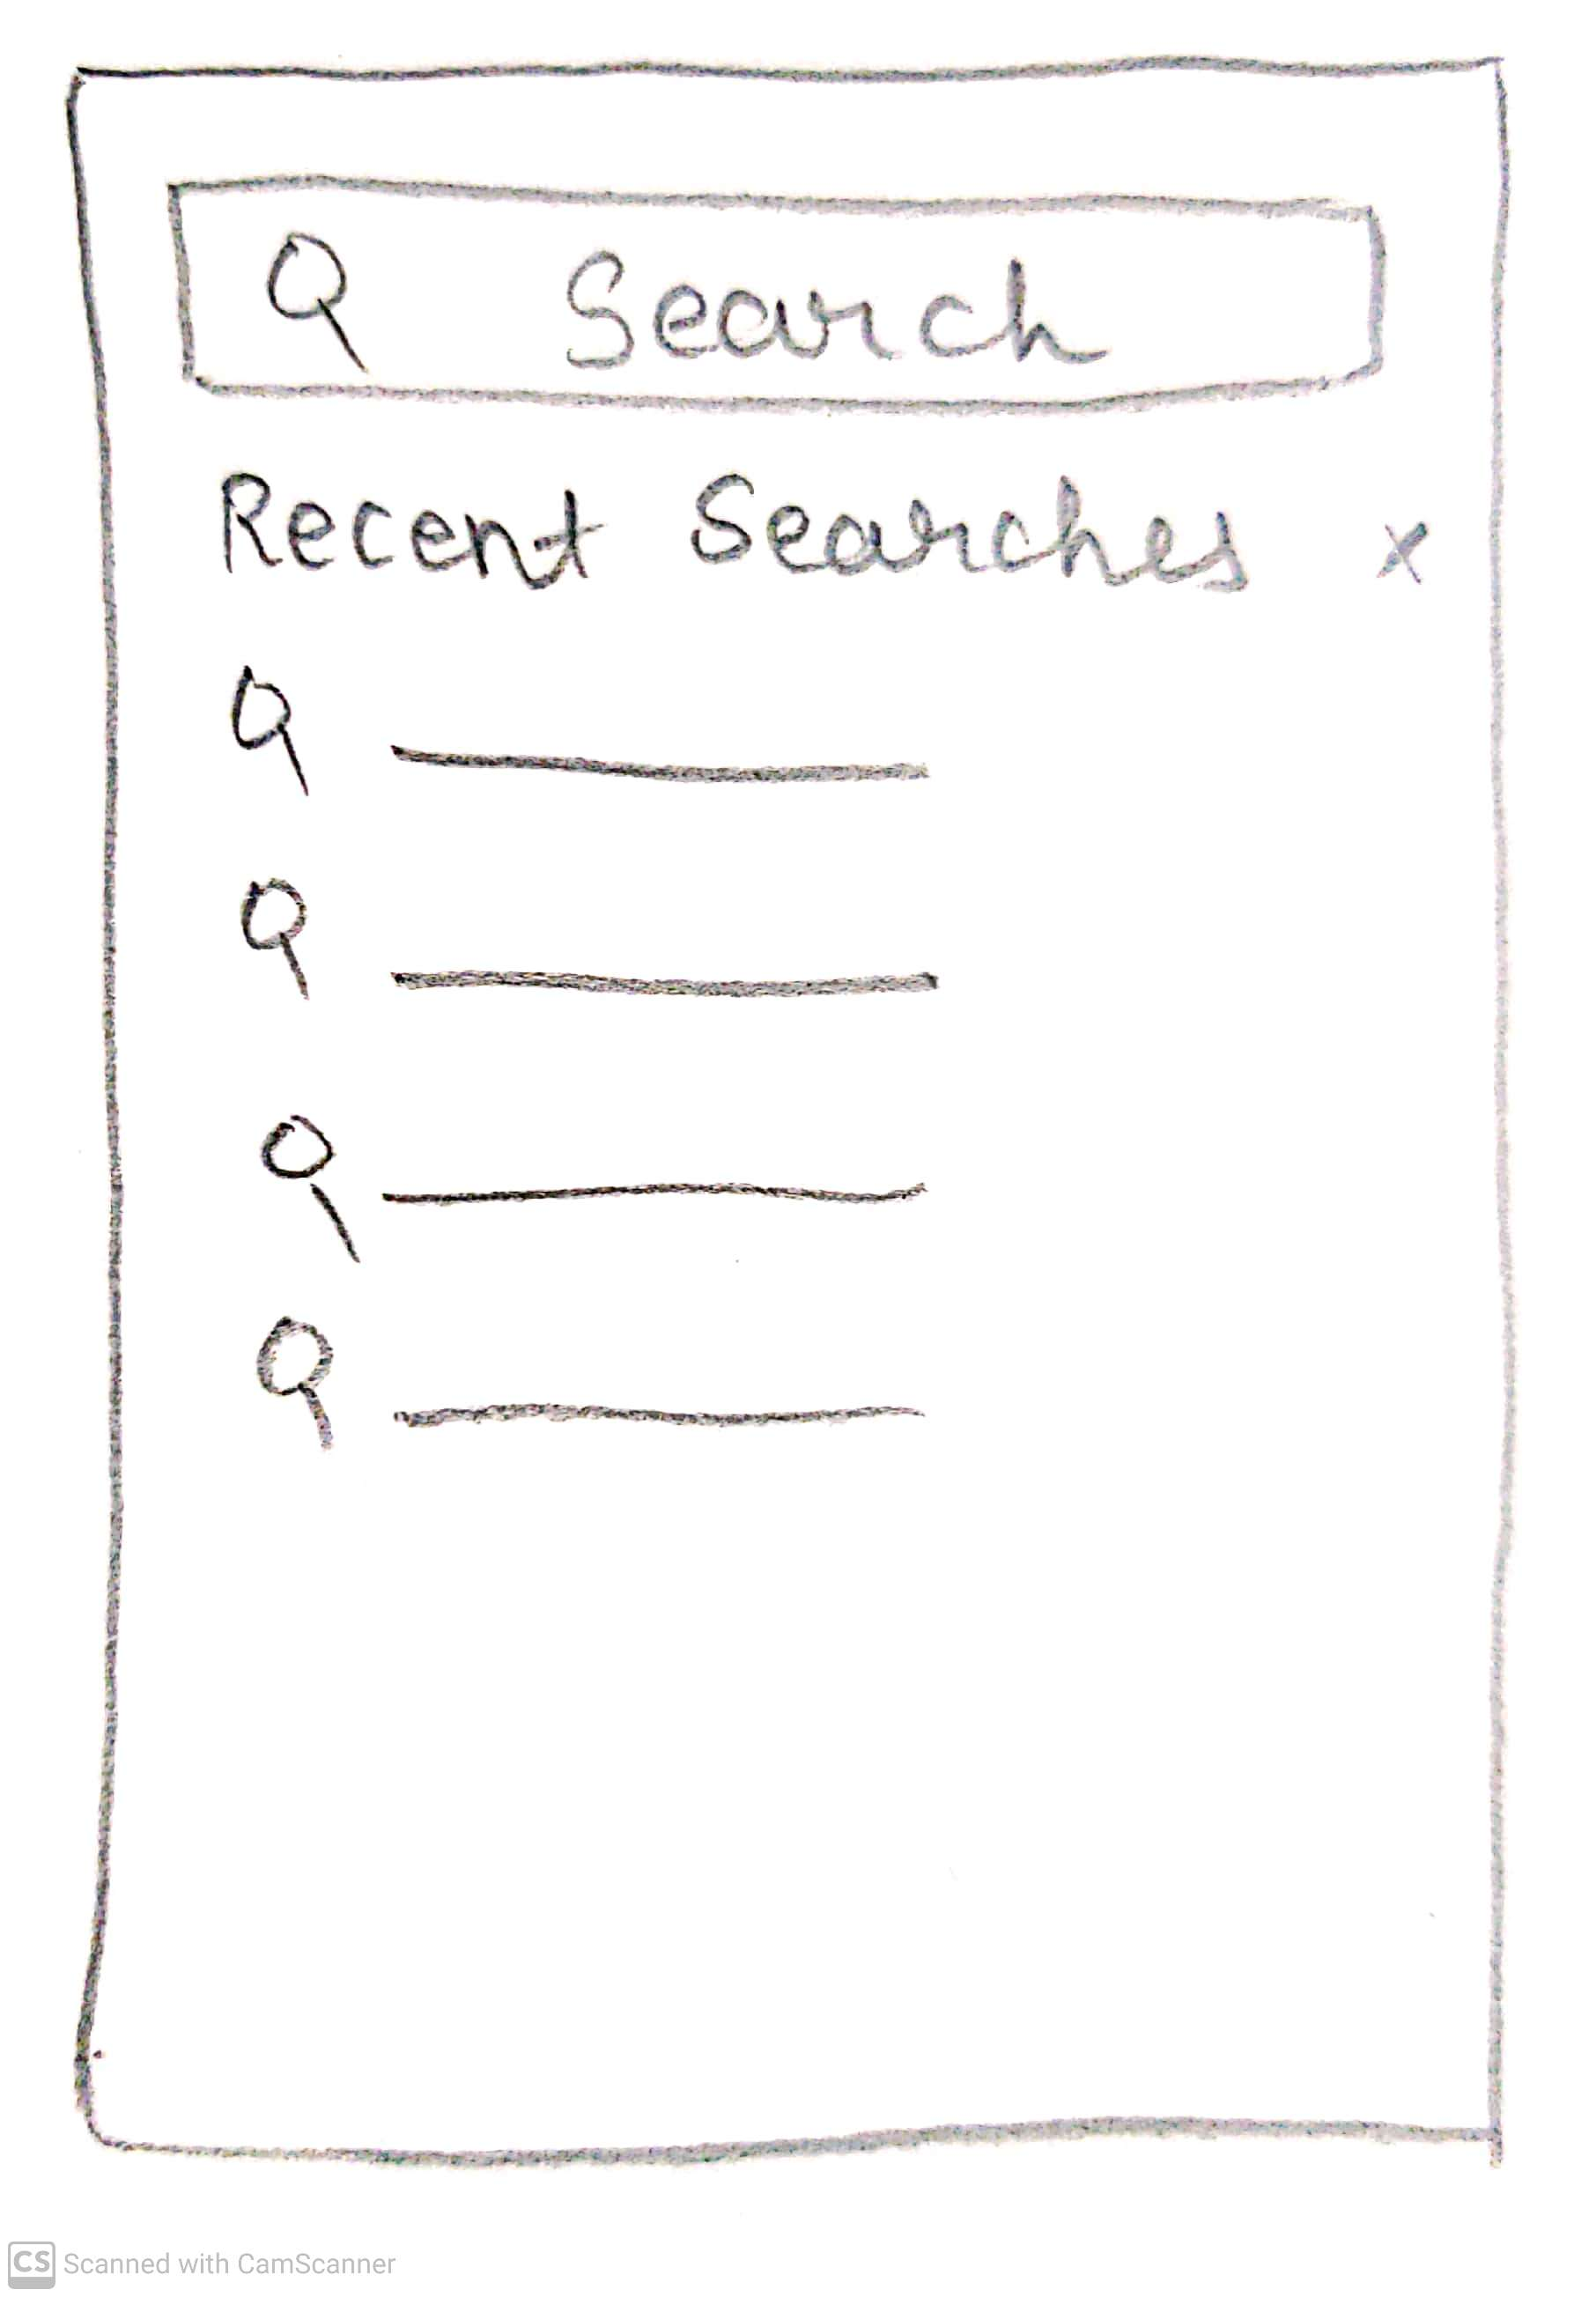 Search
Recent Searches x
CS Scanned with CamScanner